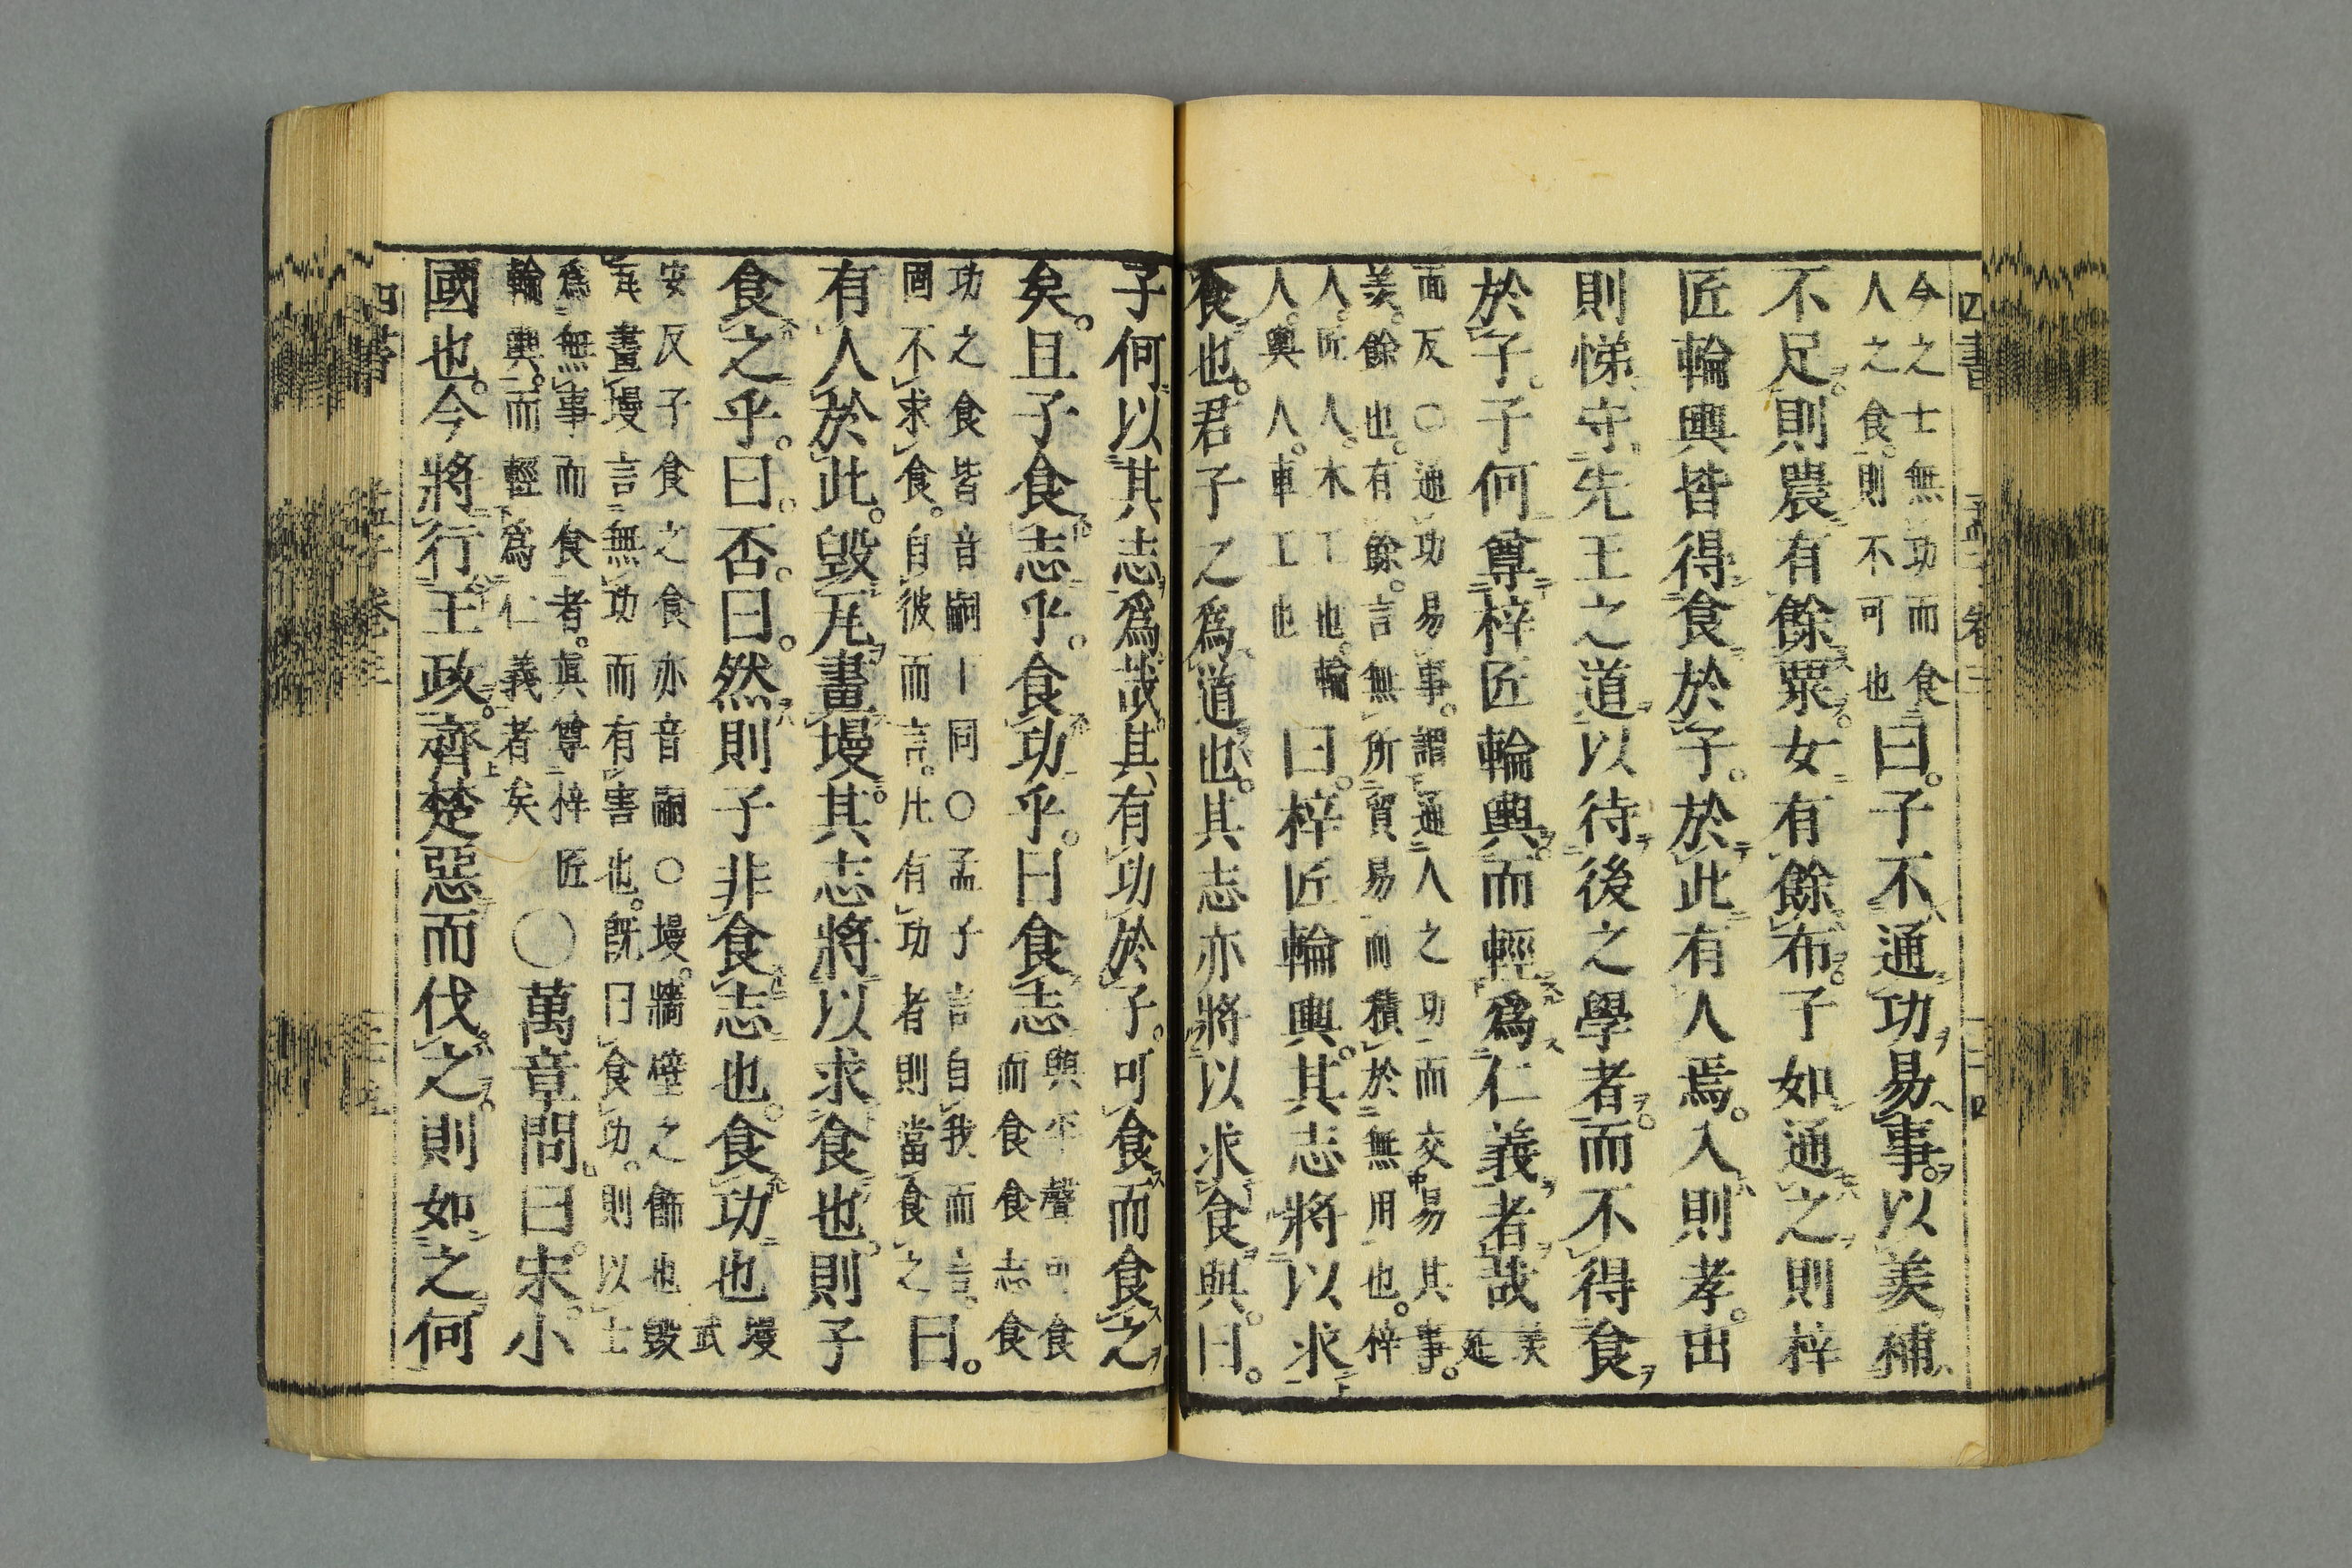 四書 孟子卷三 二十四
今之士無功而食
人之食。則不可也
曰。子不通功易事。以羨補
不足。則農有餘粟。女有餘布。子如通之則梓
匠輪輿皆得食於子。於此有人焉。入則孝。出
則悌。守先王之道以待後之學者。而不得食
於子。子何尊梓匠輪輿。而輕爲仁義者哉
羨
延
面反○通功易事。謂通人之功而交易其事。
羨。餘也。有餘。言無所貿易而積於無用也。梓
人。匠人。木工也。輪
人。輿人。車工也
曰。梓匠輪輿。其志將以求
食也。君子之爲道也。其志亦將以求食與。曰。
子何以其志爲哉。其有功於子。可食而食之
矣。且子食志乎。食功乎。曰食志
與平聲可食
而食食志食
功之食皆音嗣下同○孟子言自我而言。
固不求食。自彼而言。凡有功者則當食之
曰。
有人於此。毀瓦畫墁。其志將以求食也。則子
食之乎。曰。否。曰。然則子非食志也。食功也
墁
武
安反子食之食亦音嗣○墁。牆壁之飾也毀
瓦畫墁言無功而有害也。旣曰食功。則以士
爲無事而食者。眞尊梓匠
輪輿。而輕爲仁義者矣
○萬章問。曰。宋。小
國也。今將行王政。齊楚惡而伐之。則如之何
四書 孟子卷三